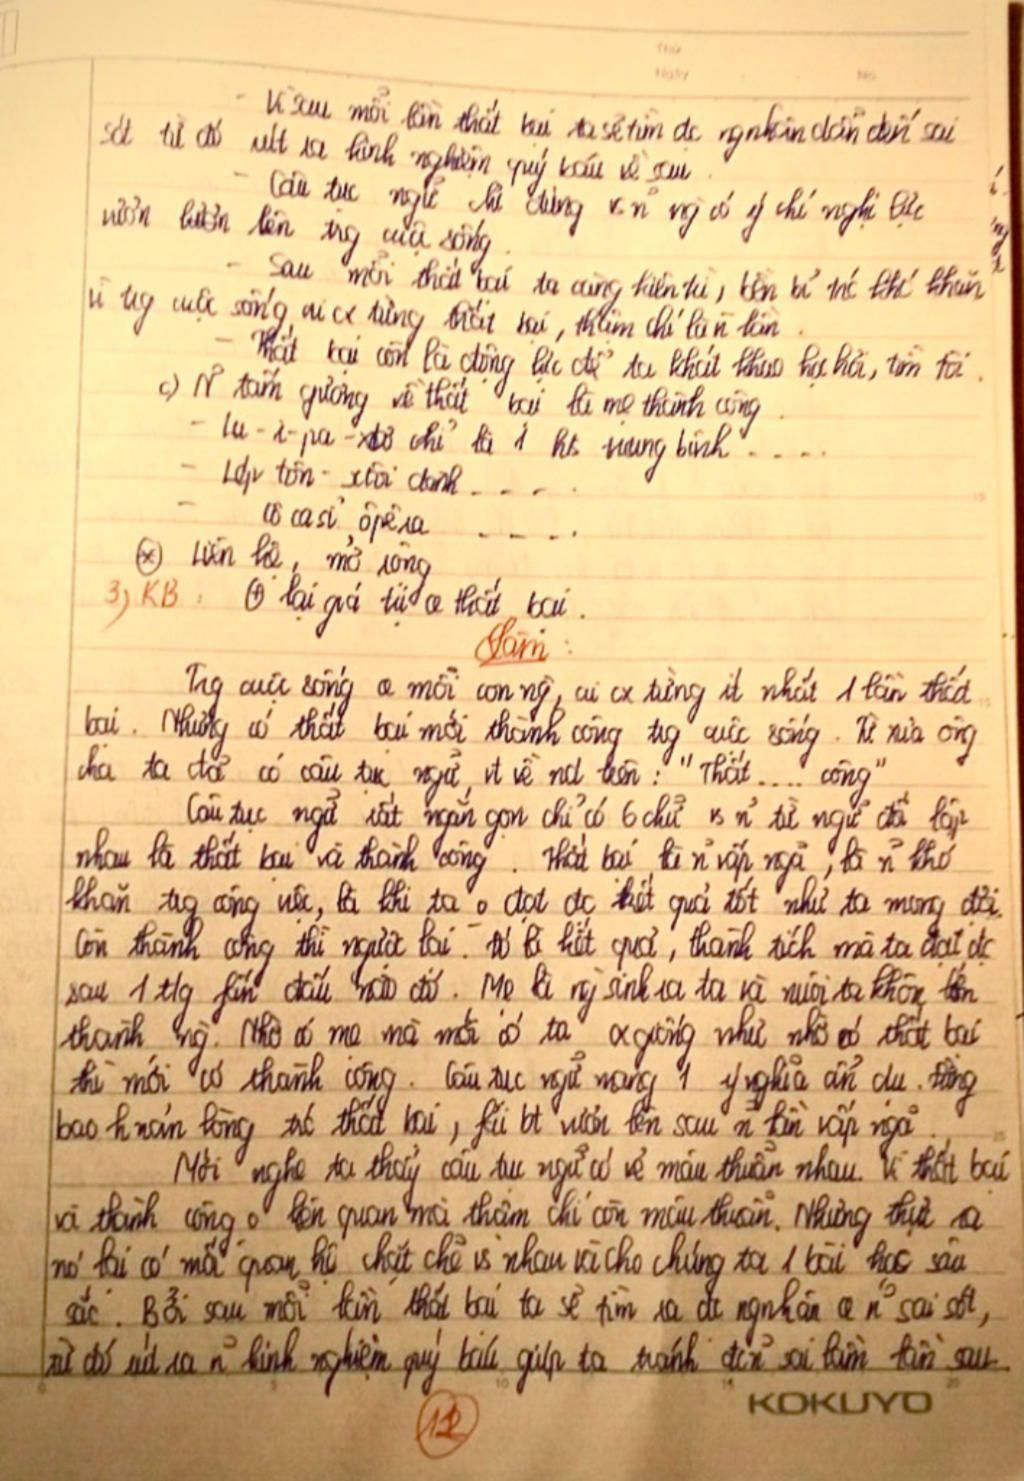 Thứ
Ngày No.
- Vì sau mỗi lần thất bại ta sẽ tìm dc ngnhân dẫn đến sai
sót từ đó rút ra kinh nghiệm quý báu về sau.
- Câu tục ngữ chỉ đúng vs n~ ng có ý chí nghị lực
vươn lên trg cuộc sống.
- Sau mỗi thất bại ta càng kiên trì, bền bỉ trc khó khăn
vì trg cuộc sống ai cx từng thất bại, thậm chí là n lần.
- Thất bại còn là động lực để ta khát khao học hỏi, tìm tòi.
c) N~ tấm gương về thất bại là mẹ thành công.
- Lu-i-pa-xtơ chỉ là 1 hs trung bình ....
- Lép tôn-xtôi đành ....
- cô ca sĩ ôpêra ....
(*) Liên hệ, mở rộng
3) KB: lại giá trị thất bại.
Làm:
Trg cuộc sống mỗi con ng, ai cx từng ít nhất 1 lần thất
bại. Nhưng có thất bại mới thành công trg cuộc sống. Từ xưa ông
cha ta đã có câu tục ngữ vt về nd trên: "Thất .... công"
Câu tục ngữ rất ngắn gọn chỉ có 6 chữ vs n~ từ ngữ đối lập
nhau là thất bại và thành công. Thất bại là n~ vấp ngã, là n~ khó
khăn trg công việc, là khi ta o đạt dc kết quả tốt như ta mong đợi.
Còn thành công thì ngược lại. Đó là kết quả, thành tích mà ta đạt dc
sau 1 tlg fấn đấu nào đó. Mẹ là ng sinh ra ta và nuôi ta khôn lớn
thành ng. Nhờ có mẹ mà mới có ta cx giống như nhờ có thất bại
thì mới có thành công. Câu tục ngữ mang 1 ý nghĩa ẩn dụ. Đừng
bao h nản lòng trc thất bại, fải bt vươn lên sau n~ lần vấp ngã.
Mới nghe ta thấy câu tục ngữ có vẻ mâu thuẫn nhau. Vì thất bại
và thành công o liên quan mà thậm chí còn mâu thuẫn. Nhưng thực ra
nó lại có mối quan hệ chặt chẽ vs nhau và cho chúng ta 1 bài học sâu
sắc. Bởi sau mỗi lần thất bại ta sẽ tìm ra dc ngnhân n~ sai sót,
từ đó rút ra n~ kinh nghiệm quý báu giúp ta tránh sai lầm lần sau.
KOKUYO
12